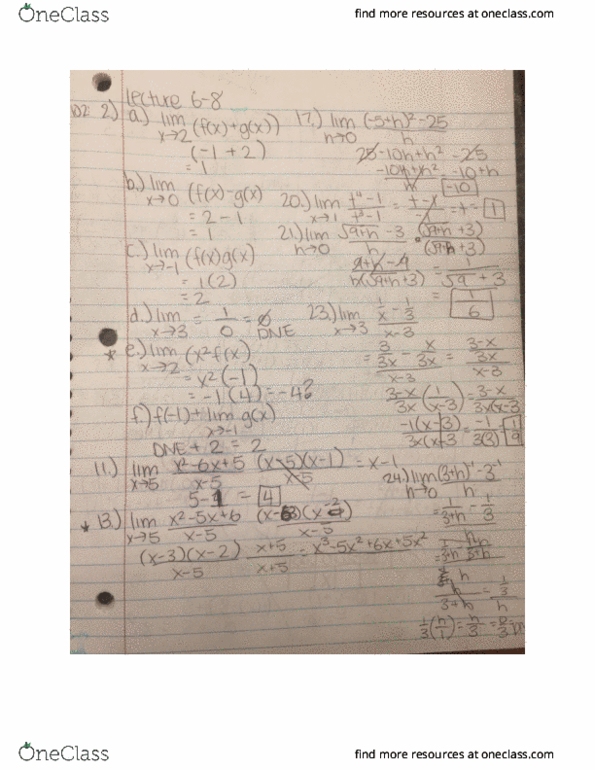 OneClass
find more resources at oneclass.com
lecture 6-8
2) a.) lim x→2 (f(x)+g(x))
(-1+2)
= 1
b.) lim x→0 (f(x)-g(x))
= 2-1
= 1
c.) lim x→-1 (f(x)g(x))
= 1(2)
= 2
d.) lim x→3 = 1/0 = ∅ DNE
* e.) lim x→2 (x²f(x))
= x²(-1)
= -1(4) = -4?
f.) f(-1)+lim x→-1 g(x)
DNE + 2 = 2
11.) lim x→5 x²-6x+5 / x-5 (x-5)(x-1) / x-5 = x-1
5-1 = 4
* 13.) lim x→5 x²-5x+6 / x-5 (x-3)(x-2) / x-5
(x-3)(x-2) / x-5 x+5 / x+5 = x³-5x²+6x+5x²
17.) lim h→0 (-5+h)²-25 / h
25-10h+h²-25
-10h+h² / h = -10+h
-10
20.) lim x→1 t⁴-1 / t³-1 = = t = 1
21.) lim h→0 √9+h -3 / h · (√9+h +3) / (√9+h +3)
9+h-9 / h(√9+h+3) = 1 / √9+3
1/6
23.) lim x→3 1/x - 1/3 / x-3
= 3/3x - x/3x / x-3 = 3-x/3x / x-3
3-x / 3x (1 / x-3) = 3-x / 3x(x-3
-1(x-3 / 3x(x-3 = -1 / 3(3) 1/9
24.) lim h→0 (3+h)⁻¹-3⁻¹ / h
= 1/3+h - 1/3
h
3+h = 1/3 / h
1/3(h/1) = h/3
OneClass
find more resources at oneclass.com